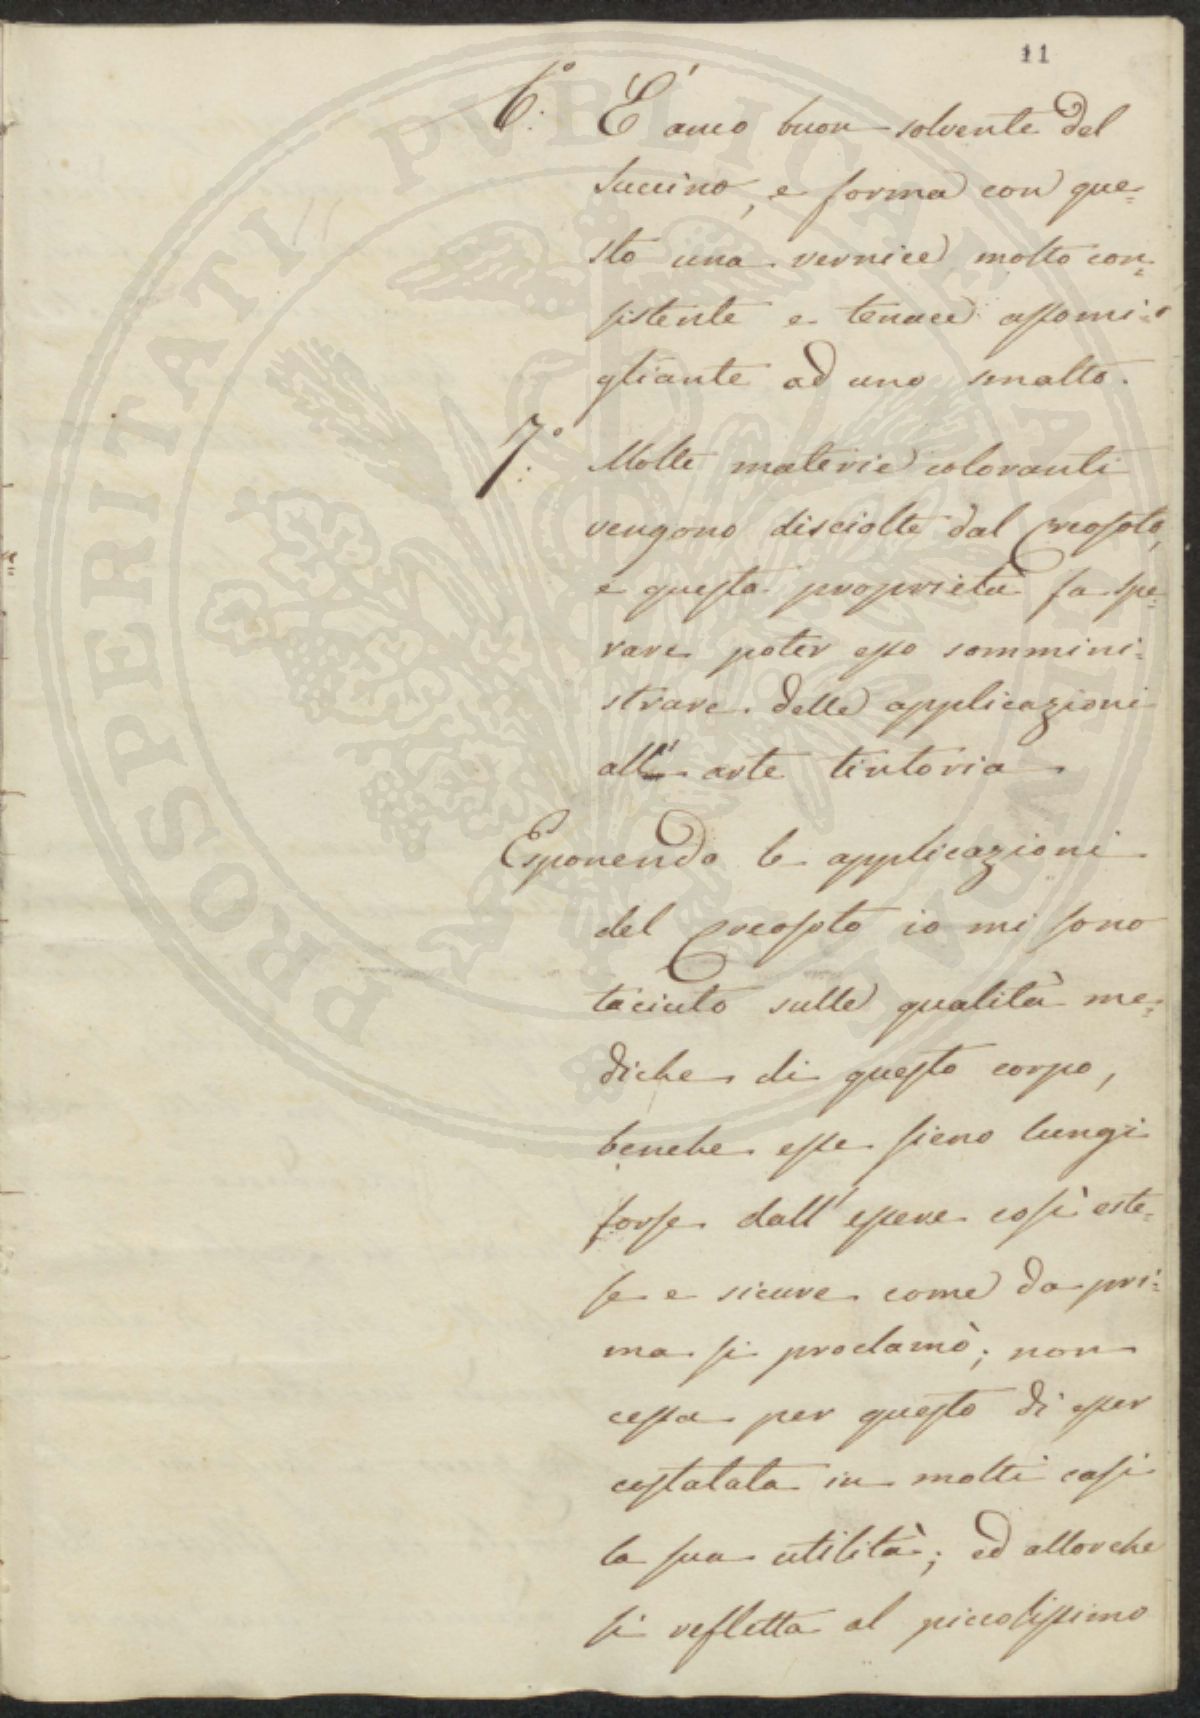 11
6.° É anco buon solvente del
succino, e forma con que=
sto una vernice molto con=
sistente e tenace assomi=
gliante ad uno smalto.
7.° Molte materie coloranti
vengono disciolte dal Creosoto,
e questa proprietà fa spe=
rare poter esso sommini=
strare delle applicazioni
all' arte tintoria
Esponendo le applicazioni
del Creosoto io mi sono
taciuto sulle qualità me=
diche di questo corpo,
benche esse sieno lungi
forse dall' essere così este=
se e sicure come da pri=
ma si proclamò; non
cessa per questo di esser
costatata in molti casi
la sua utilità; ed allorche
si refletta al piccolissimo
PROSPERITATI PVBLICAE AVGENDAE